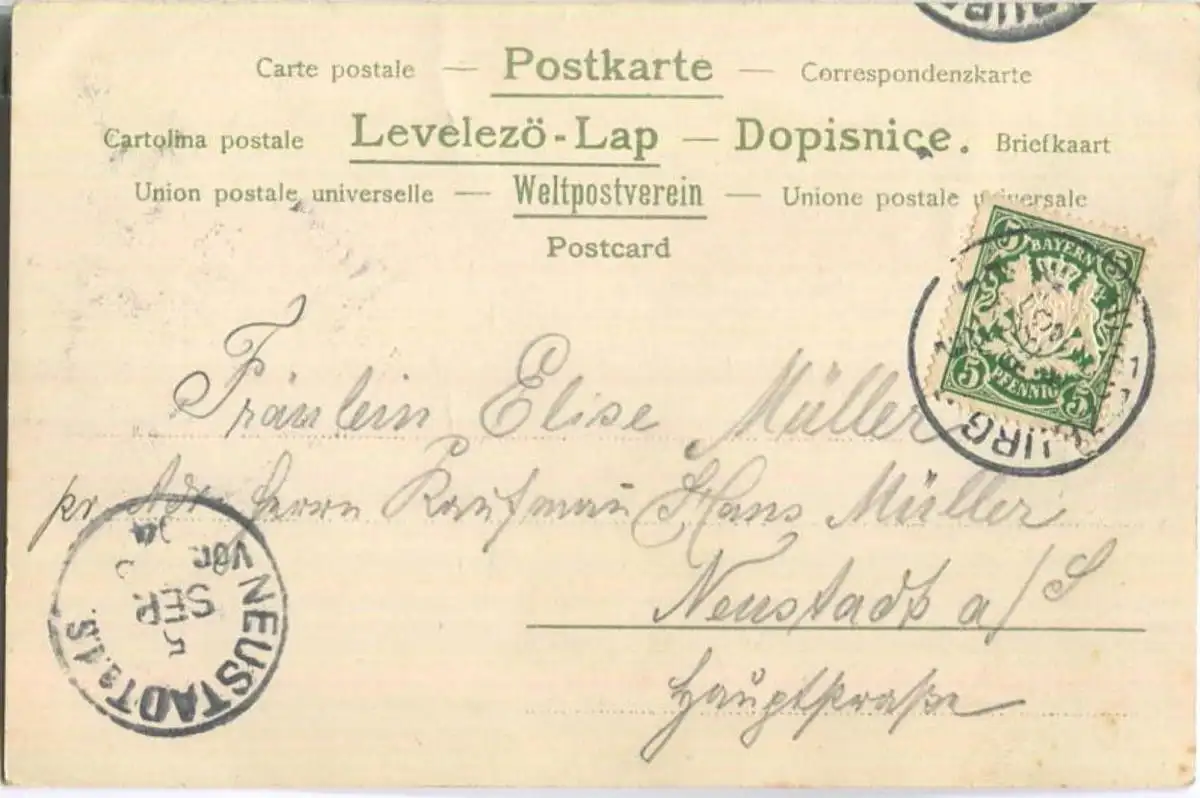 Carte postale — Postkarte — Correspondenzkarte
Cartolina postale Levelezö-Lap — Dopisnice. Briefkaart
Union postale universelle — Weltpostverein — Unione postale universale
Postcard
5 BAYERN 5
5 PFENNIG 5
URG
Fräulein Elise Müller
pr. Adr. Herrn Kaufmann Hans Müller
Neustadt a/S
Hauptstraße
NEUSTADT a.d.S.
5 SEP.
Vor.